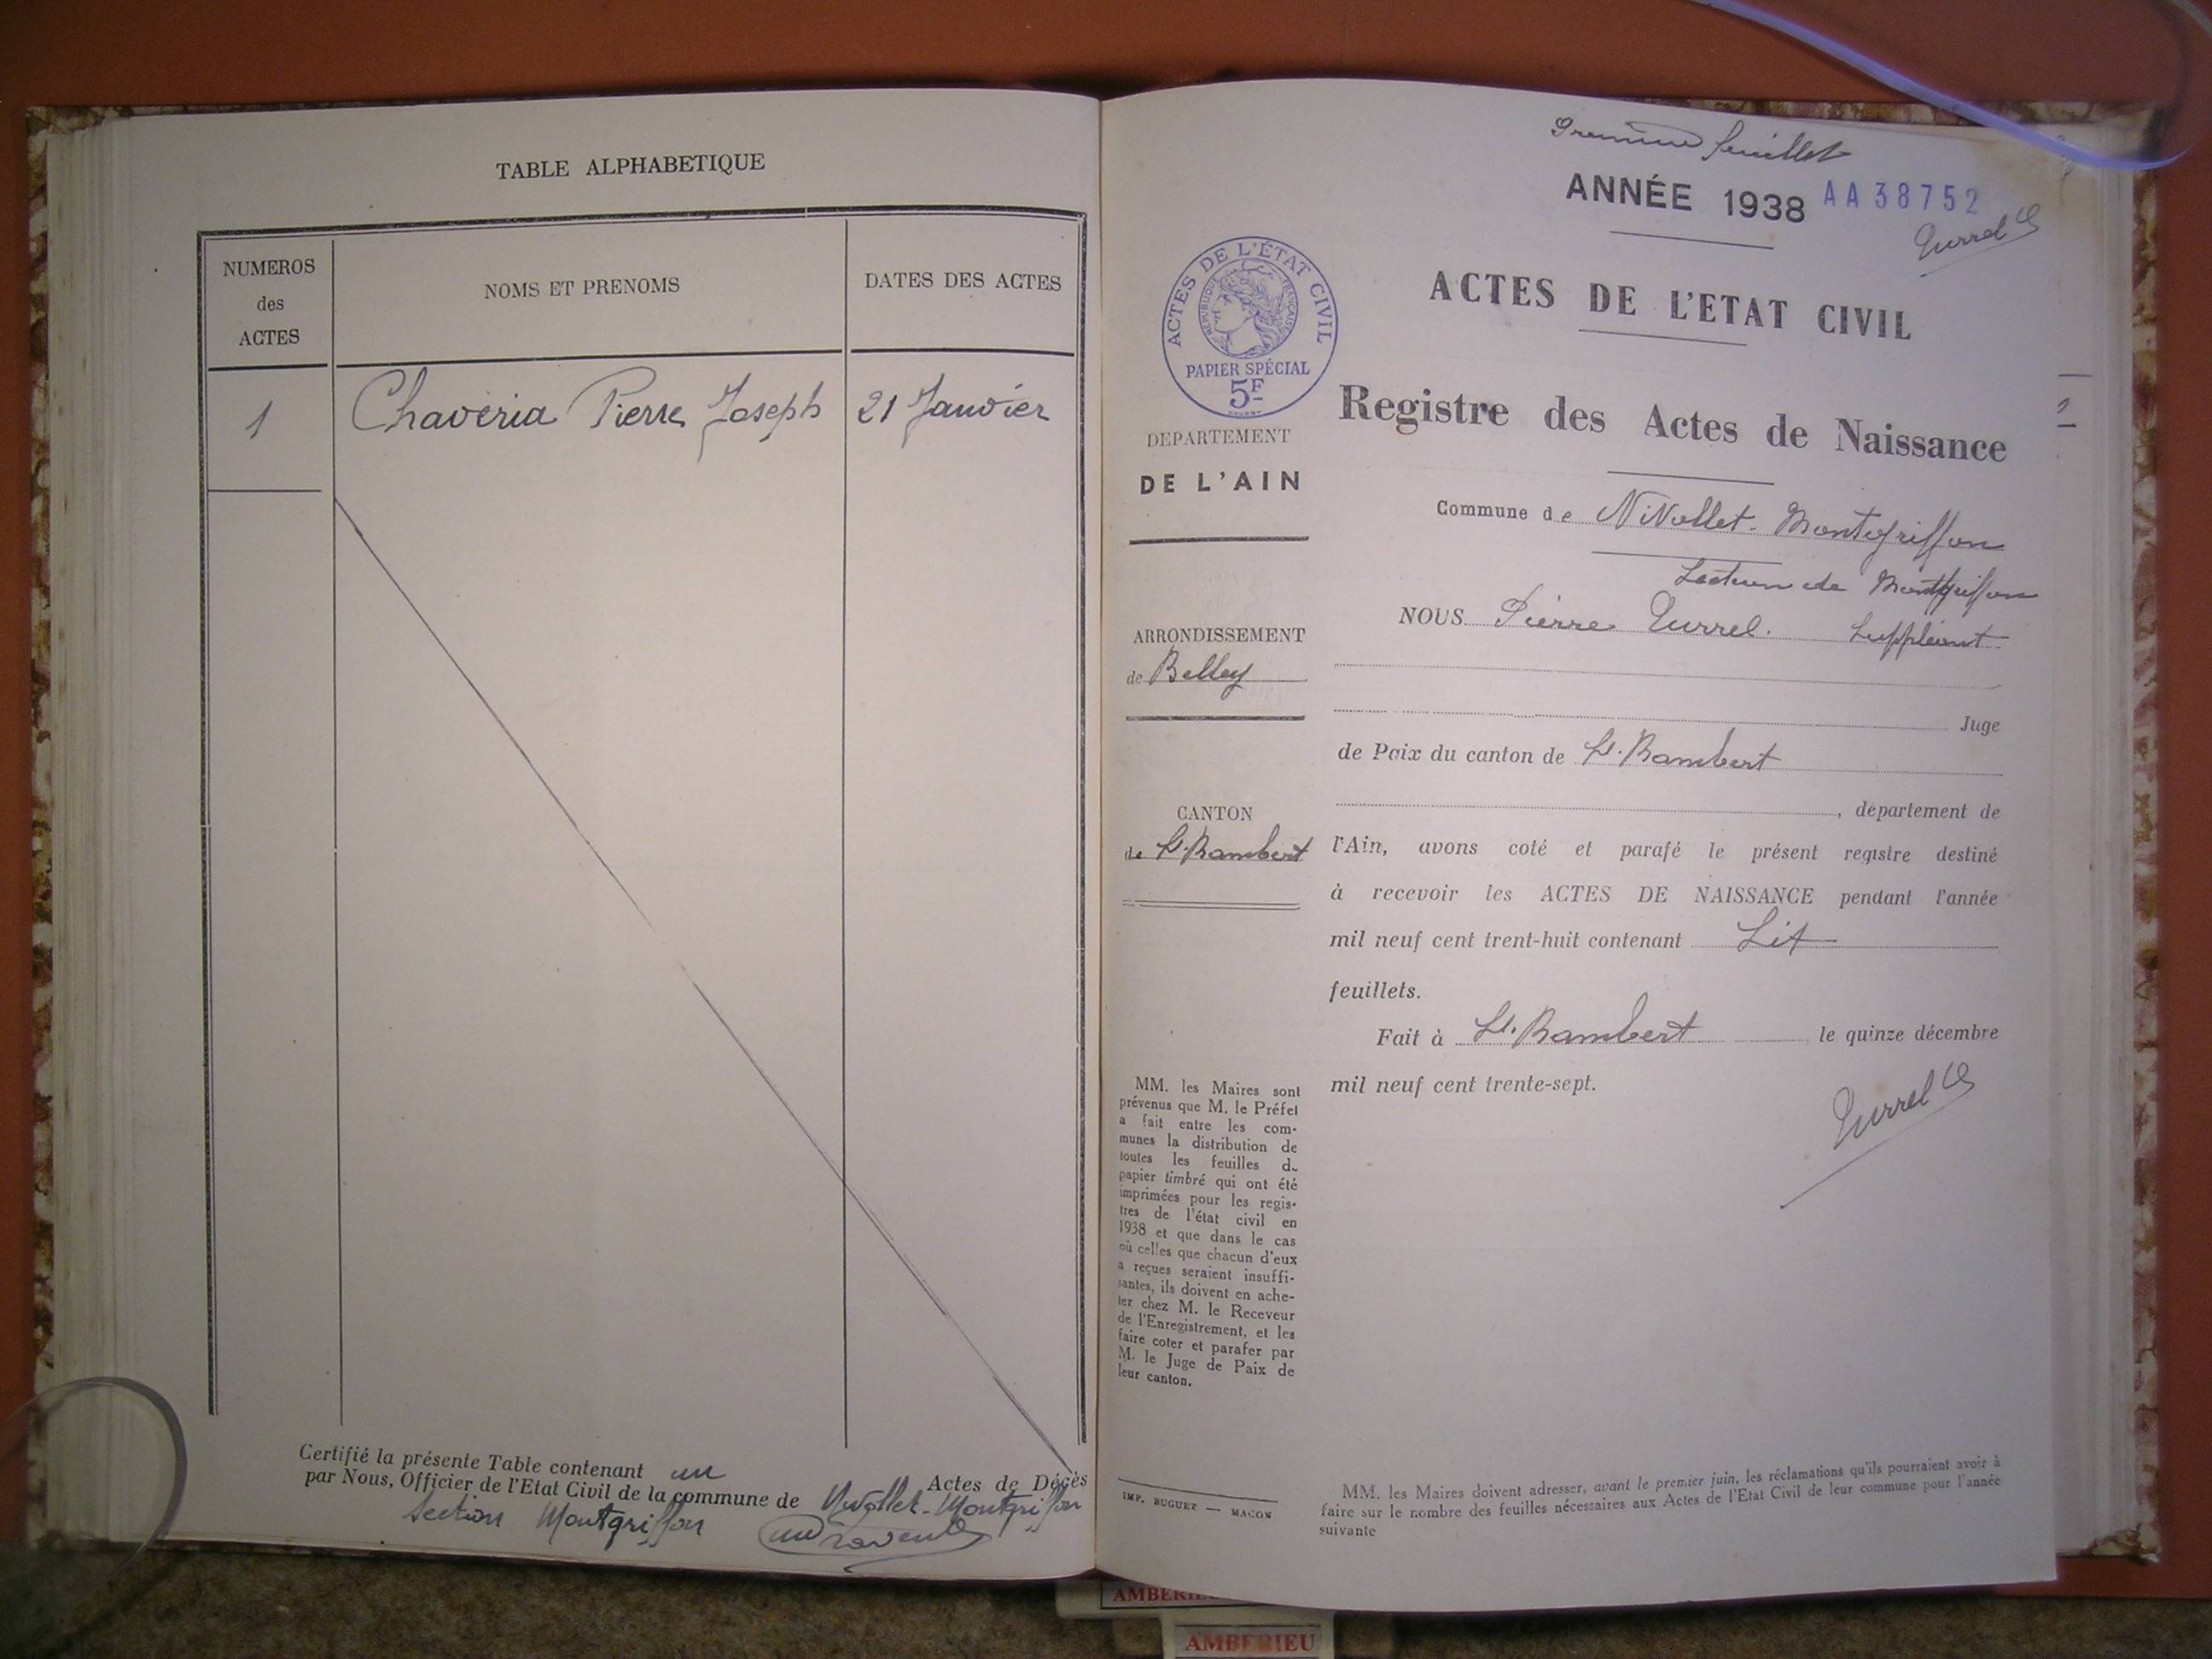 TABLE ALPHABETIQUE
NUMEROS
des
ACTES
NOMS ET PRENOMS
DATES DES ACTES
1 Chaveria Pierre Joseph 21 Janvier
Certifié la présente Table contenant un Actes de Décès
par Nous, Officier de l'Etat Civil de la commune de Nivollet-Montgriffon
Section Montgriffon
feuillet
ANNÉE 1938 AA38752
Turrel
ACTES DE L'ÉTAT CIVIL
RÉPUBLIQUE FRANÇAISE
PAPIER SPÉCIAL
5F
ACTES DE L'ETAT CIVIL
Registre des Actes de Naissance
DEPARTEMENT
DE L'AIN
Commune de Nivollet-Montgriffon
Section de Montgriffon
NOUS Pierre Turrel. Suppléant
ARRONDISSEMENT
de Belley
Juge
de Paix du canton de St. Rambert
, département de
CANTON
de St. Rambert
l'Ain, avons coté et parafé le présent registre destiné
à recevoir les ACTES DE NAISSANCE pendant l'année
mil neuf cent trent-huit contenant
feuillets.
Fait à St. Rambert, le quinze décembre
mil neuf cent trente-sept.
Turrel
MM. les Maires sont
prévenus que M. le Préfet
a fait entre les com-
munes la distribution de
toutes les feuilles de
papier timbré qui ont été
imprimées pour les regis-
tres de l'état civil en
1938 et que dans le cas
où celles que chacun d'eux
a reçues seraient insuffi-
santes, ils doivent en ache-
ter chez M. le Receveur
de l'Enregistrement, et les
faire coter et parafer par
M. le Juge de Paix de
leur canton.
IMP. BUGUET — MACON
MM. les Maires doivent adresser, avant le premier juin, les réclamations qu'ils pourraient avoir à
faire sur le nombre des feuilles nécessaires aux Actes de l'Etat Civil de leur commune pour l'année
suivante
AMBERIEU